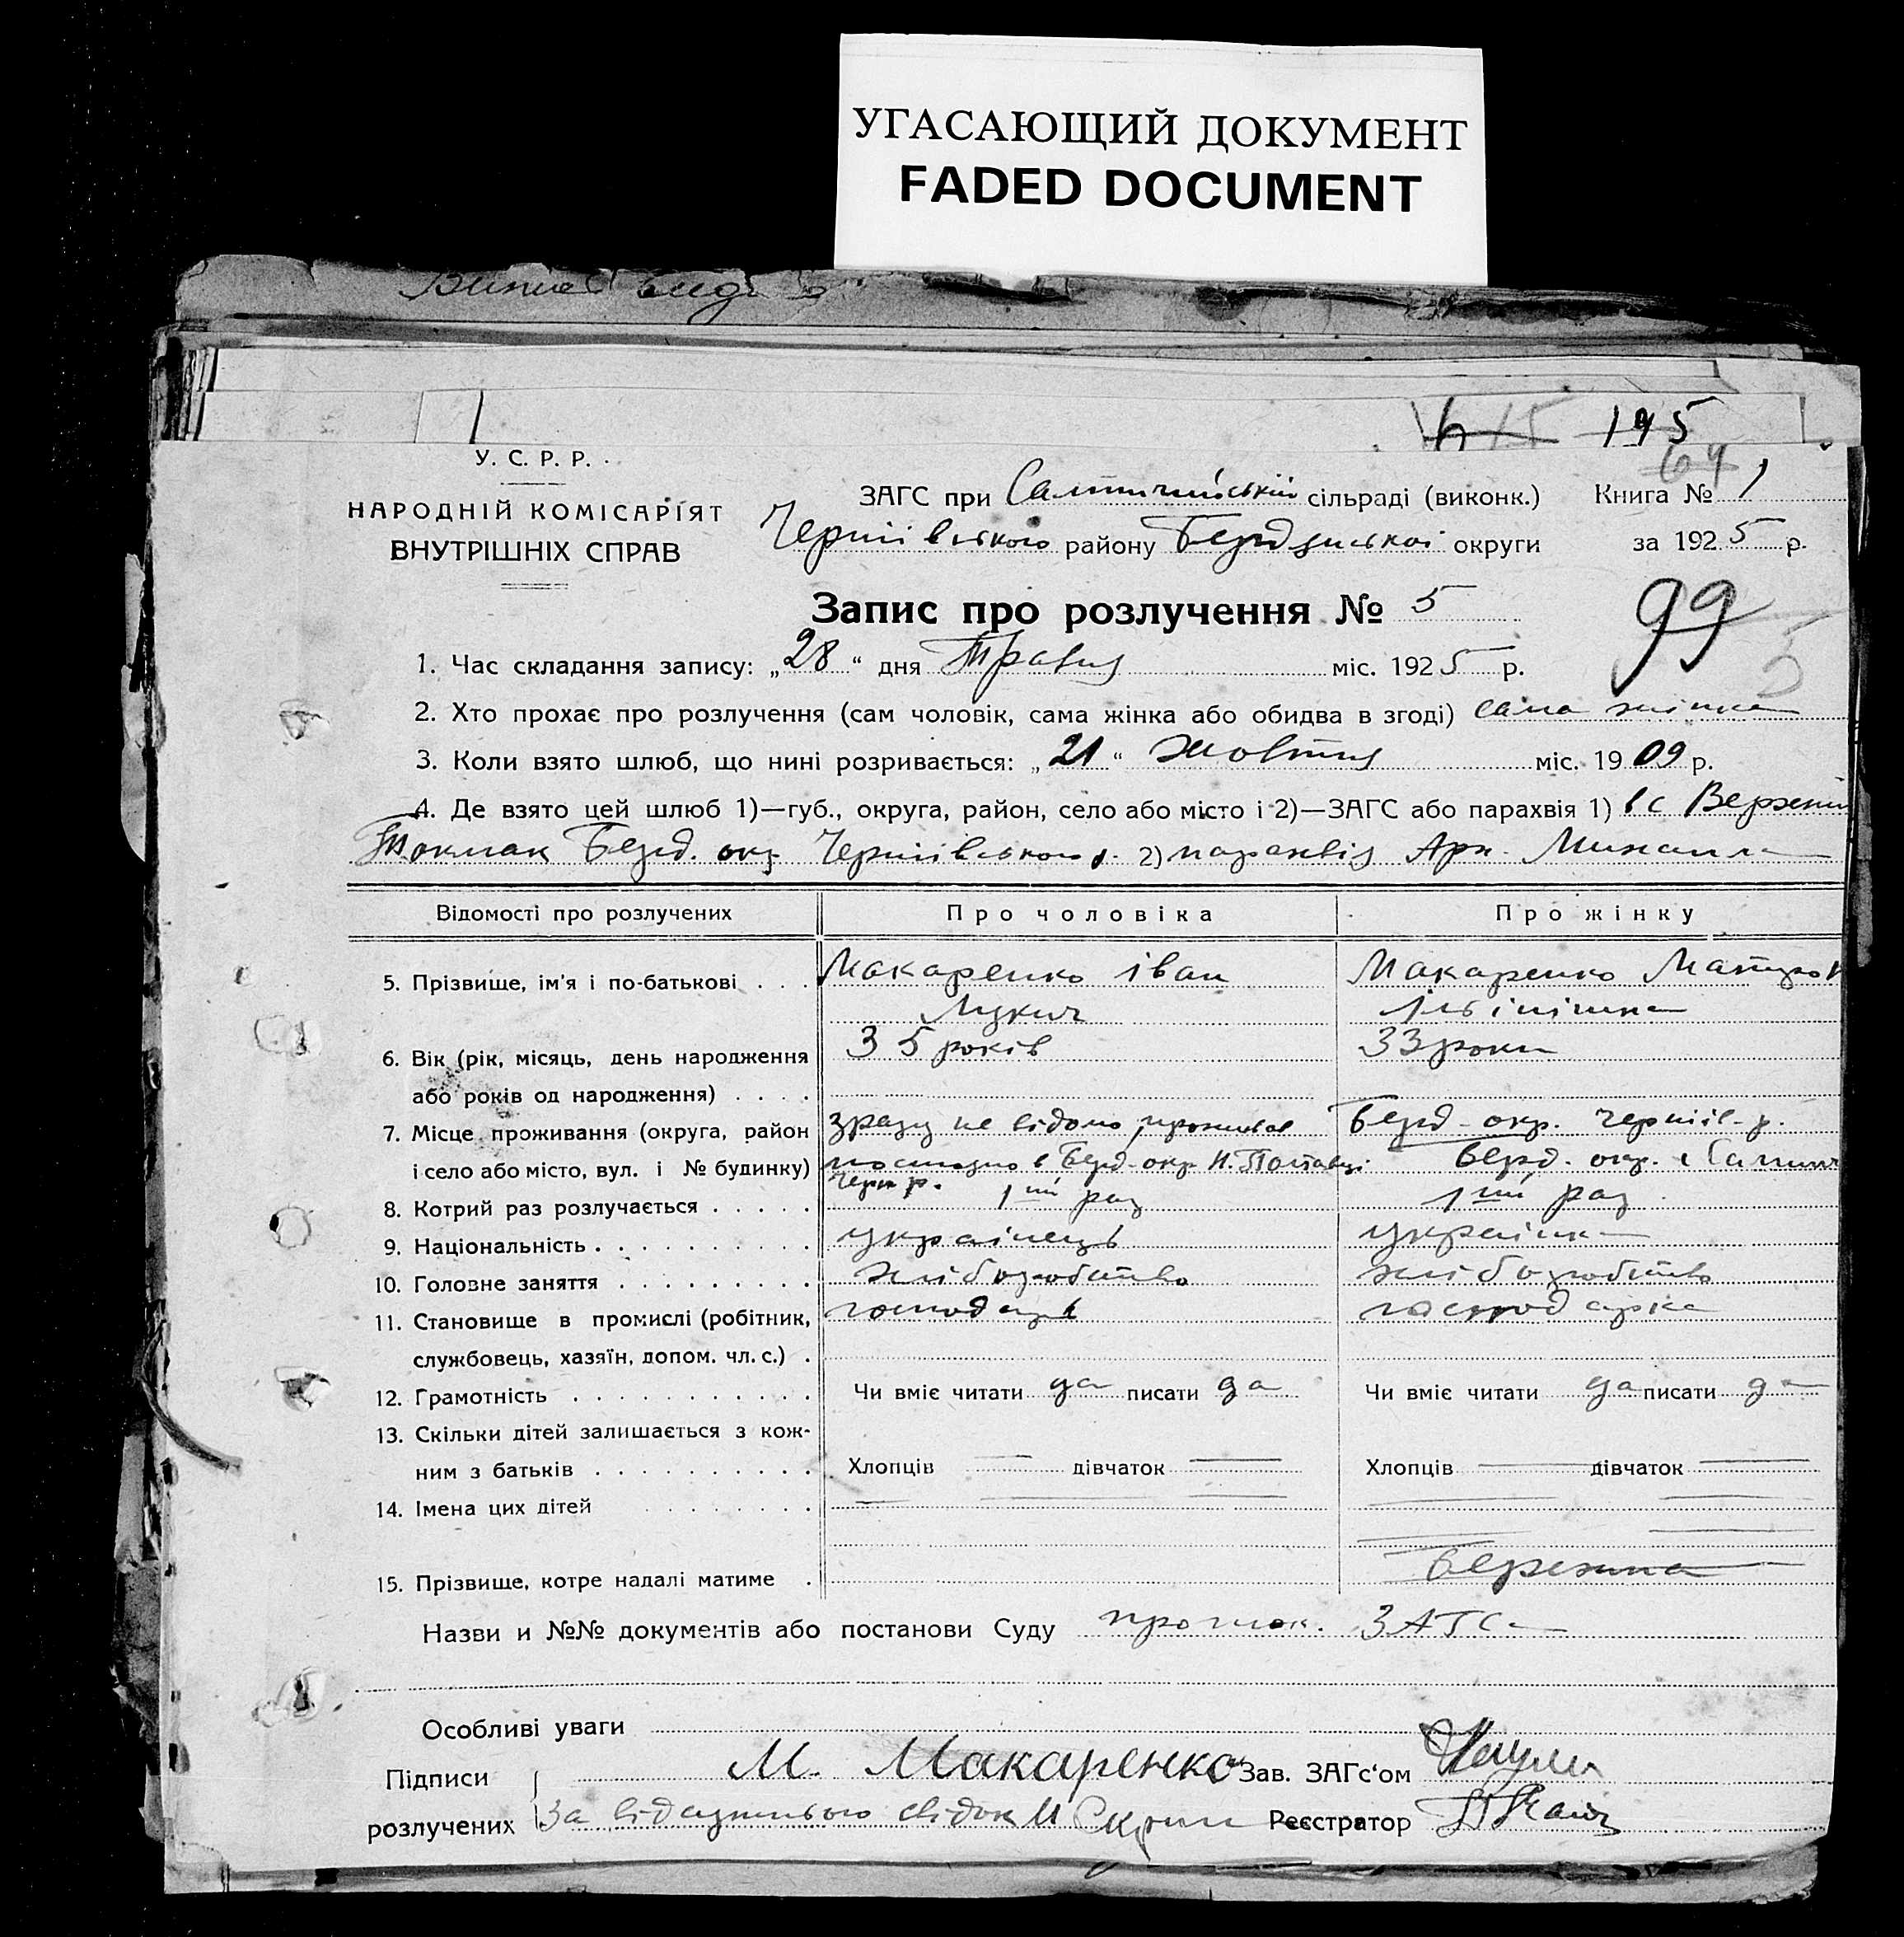 УГАСАЮЩИЙ ДОКУМЕНТ
FADED DOCUMENT
195
64
У. С. Р. Р.
НАРОДНІЙ КОМІСАРІЯТ
ВНУТРІШНІХ СПРАВ
ЗАГС при Салтичийській сільраді (виконк.) Книга № 1
Чернігівського району Бердянської округи за 1925 р.
Запис про розлучення № 5
99
1. Час складання запису: „28“ дня Травня міс. 1925 р.
2. Хто прохає про розлучення (сам чоловік, сама жінка або обидва в згоді) сама жінка
3. Коли взято шлюб, що нині розривається: „21“ жовтня міс. 1909 р.
4. Де взято цей шлюб 1)—губ., округа, район, село або місто і 2)—ЗАГС або парахвія 1) в с Верхній
Токмак Берд. окр Чернігівського р. 2) парахвія Арх. Михаила
Відомості про розлучених Про чоловіка Про жінку
5. Прізвище, ім'я і по-батькові . . . Макаренко Іван Макаренко Матрон
Лукич Ільінішна
6. Вік (рік, місяць, день народження 35 років 33 роки
або років од народження) . . . .
7. Місце проживання (округа, район зразу не відомо, проживав Берд-окр. Черніг-р.
і село або місто, вул. і № будинку) постоянно в Берд-окр Н. Полтавці Берд. окр. с Салтич
Черн р.
8. Котрий раз розлучається . . . . . 1ий раз 1ий раз
9. Національність . . . . . . . . . . українець українка
10. Головне заняття . . . . . . . . . хліборобство хліборобство
11. Становище в промислі (робітник, господарь господарка
службовець, хазяїн, допом. чл. с.) .
12. Грамотність . . . . . . . . . . . Чи вміє читати да писати да Чи вміє читати да писати да
13. Скільки дітей залишається з кож-
ним з батьків . . . . . . . . . . Хлопців — дівчаток — Хлопців — дівчаток —
14. Імена цих дітей . . . . . . . .
15. Прізвище, котре надалі матиме . Бережна
Назви и №№ документів або постанови Суду проток. ЗАГСа
Особливі уваги
Підписи М. Макаренко Зав. ЗАГс'ом
розлучених За відсутнього свідок И Реєстратор